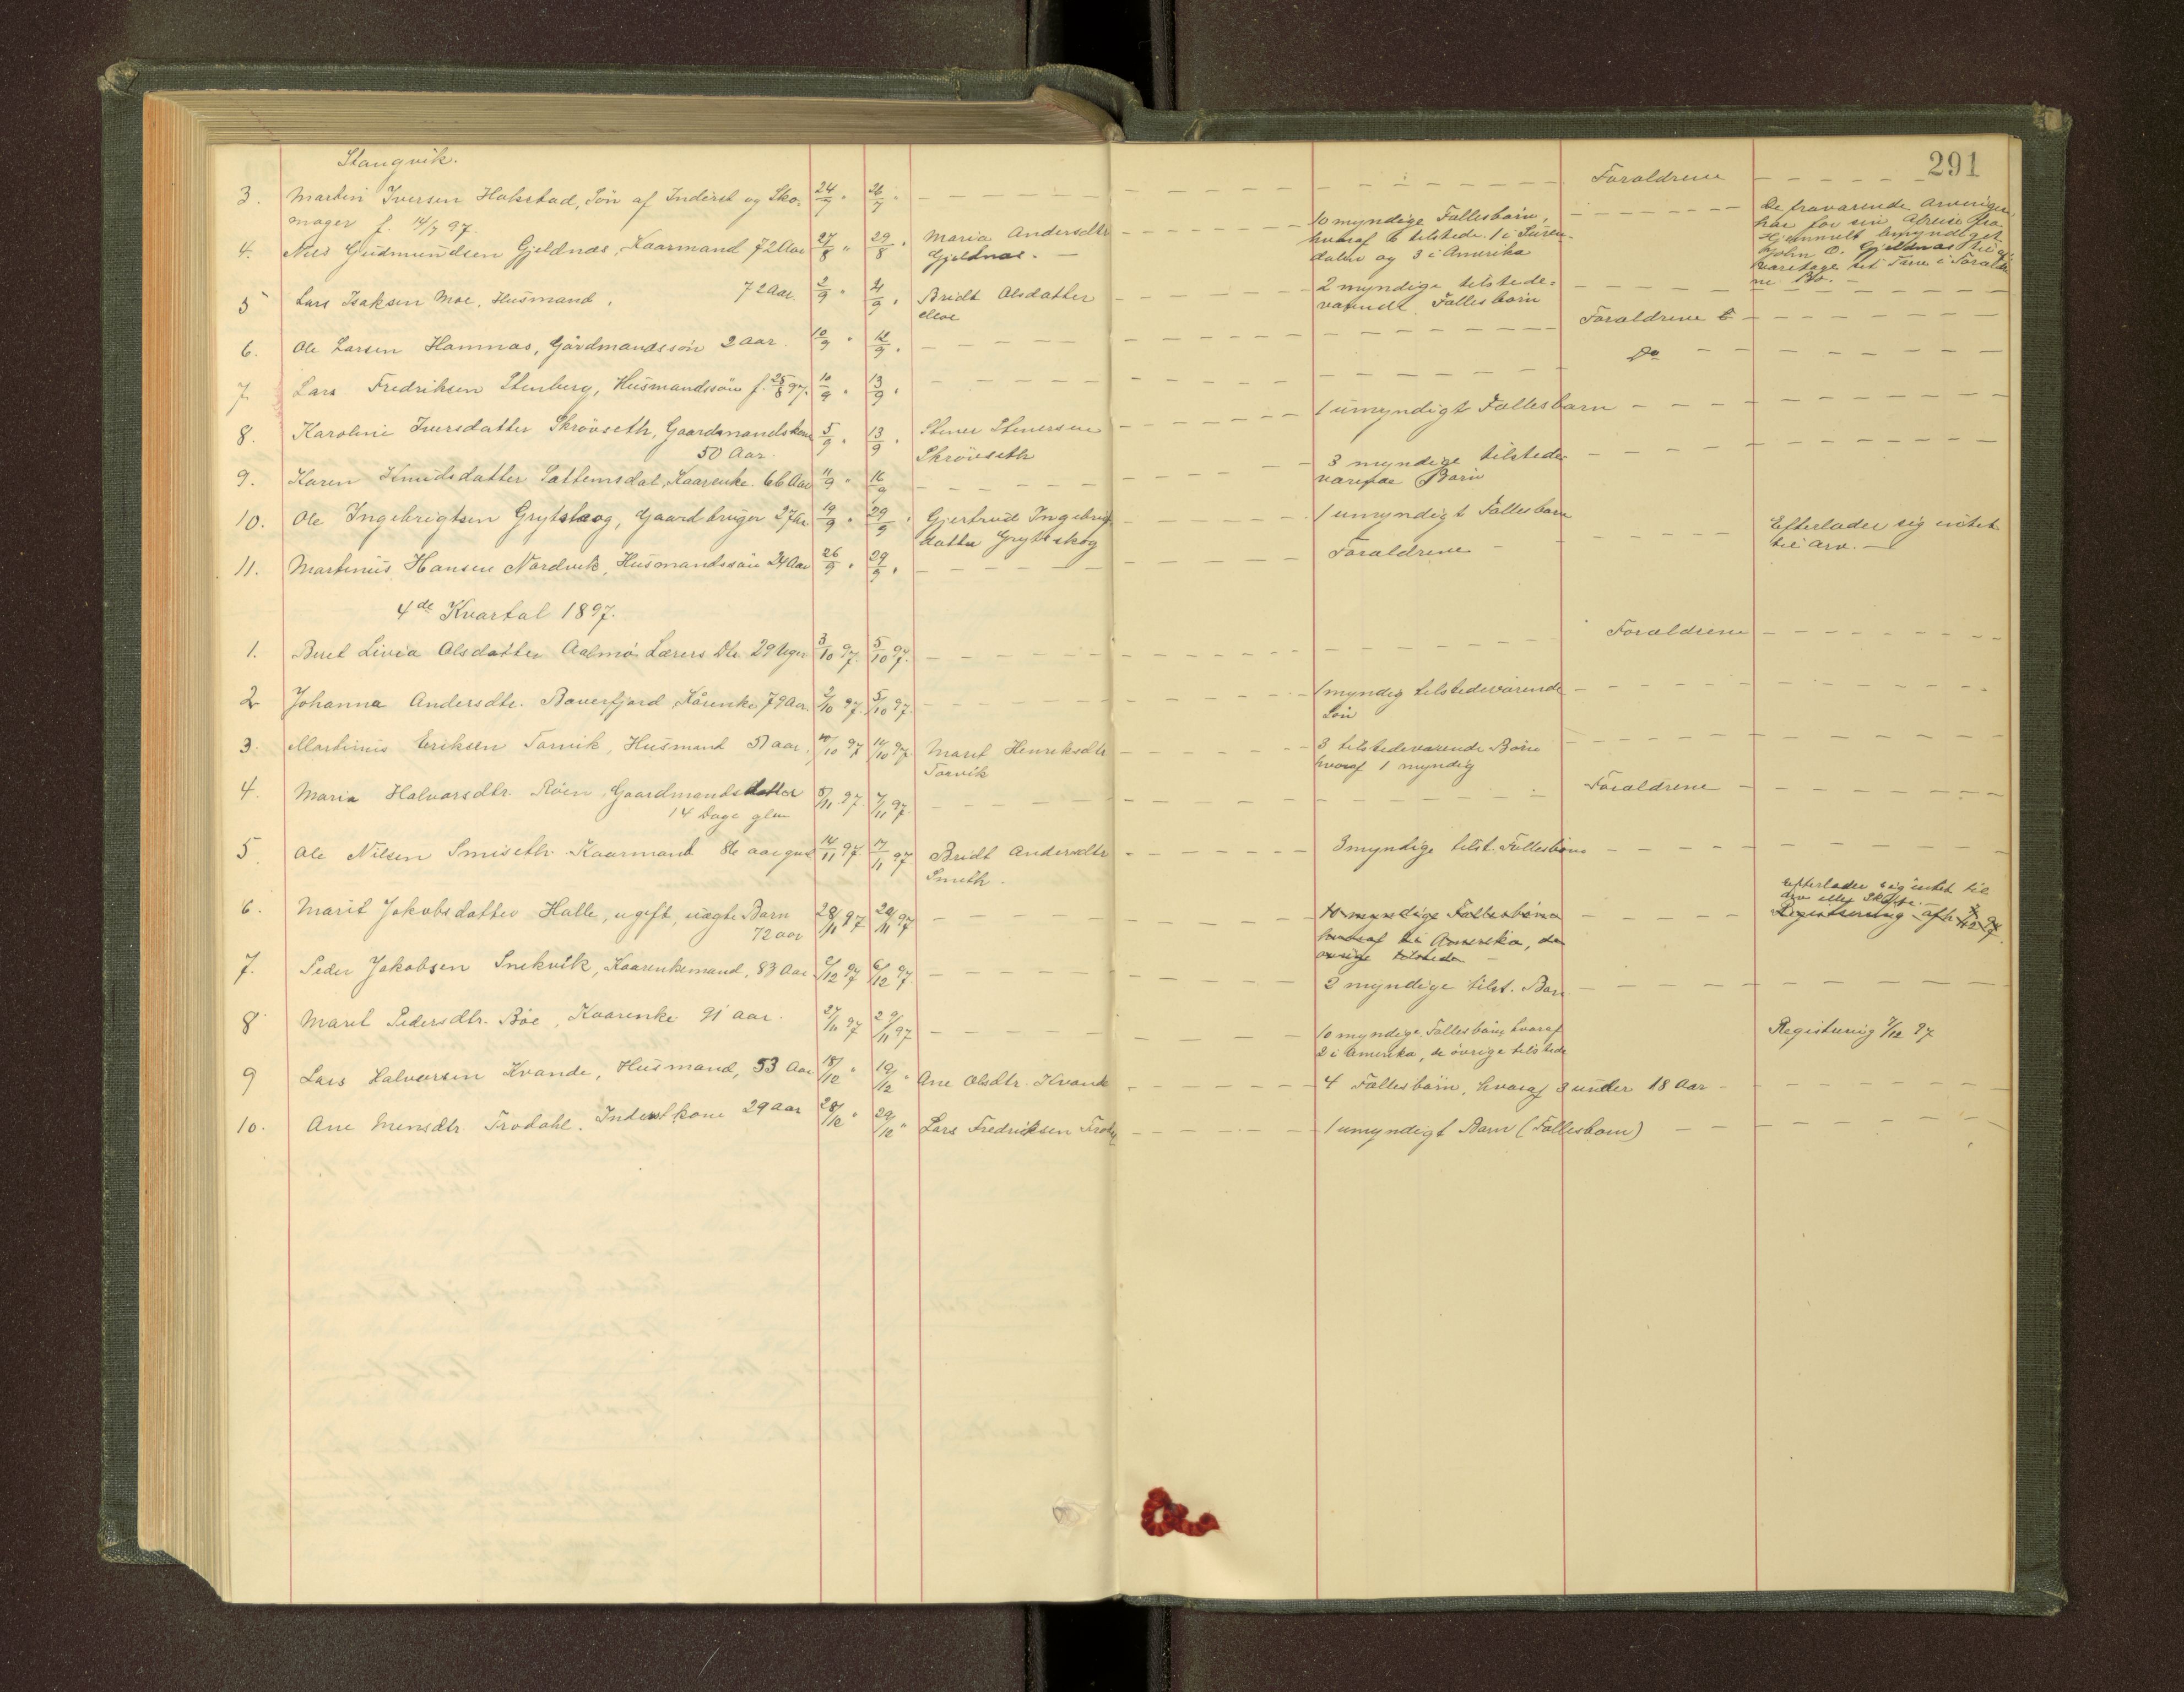 291
Stangvik.
3. Martin Iversen Halstad, Søn af Inderst og Sko-
mager f. 14/7 97. 24/7 " 26/7 " Forældrene
4. Nils Gudmundsen Gjeldnæs, Kaarmand 72 Aar 27/8 " 29/8 " Maria Andersdtr
Gjeldnæs. —
10 myndige Fællesbørn,
hvoraf 6 tilstede, 1 i Suren-
dalen og 3 i Amerika
De fraværende Arvinger
har før sin Afreise fra
Hjemmet bemyndiget
John O. Gjeldnæs til at
varetage det Tarv i Foræld
ne Bo. —
5 Lars Isaksen Moe, Husmand, 72 Aar. 2/9 " 4/9 " Bridt Olsdatter
Moe
2 myndige tilstede-
værende Fællesbørn
6. Ole Larsen Hamnæs, Gårdmandssøn 2 Aar. 10/9 " 12/9 " Forældrene
7. Lars Fredriksen Stenberg, Husmandssøn f. 25/8 97. 10/9 " 13/9 " Do
8. Karolini Iversdatter Skrøvseth, Gaardmandskone 5/9 " 13/9 " Stener Stenersen
50 Aar. Skrøvseth
1 umyndigt Fællesbarn
9. Karen Knudsdatter Sættemsdal, Kaarenke. 66 Aar 11/9 " 16/9
3 myndige tilstede
værende Børn
10. Ole Ingebrigtsen Grytskog, Gaardbruger 27 Aar 19/9 " 29/9 " Gjertrud Ingebrigts
datter Grytskog
1 umyndigt Fællesbarn
11. Martinus Hansen Nordvik, Husmandssøn 24 Aar 26/9 " 29/9 " Forældrene
Efterlader sig intet
til Arv. —
4de Kvartal 1897.
1. Beret Livia Olsdatter Aalmo Lærers Dtr 29 Uger 3/10 97. 5/10 97. Forældrene
2 Johanna Andersdtr. Bæverfjord, Kårenke, 79 Aar. 2/10 97. 5/10 97. 1 myndig tilstedeværende
Søn
3. Martinus Eriksen Torvik, Husmand 51 aar, 10/10 97 14/10 97. Marit Henriksdtr
Torvik
3 tilstedeværende Børn
hvoraf 1 myndig
4. Maria Halvorsdtr. Røen, Gaardmandsdatter 5/11 97. 7/11 97. Forældrene
14 Dage glm
5. Ole Nilsen Smiseth Kaarmand 86 aar gml 14/11 97. 17/11 97. Bridt Andersdtr
Smeth.
3 myndige tilst. Fællesbørn
6. Marit Jakobsdatter Halle, ugift, uægte Barn 28/11 97 29/11 97
72 aar
10 myndige Fællesbørn
hvoraf 2 i Amerika, de
øvrige tilstede
Efterlader sig intet til
Arv eller Skifte. —
Registrering afh. 7/12 97.
7. Peder Jakobsen Snekvik, Kaarenkemand, 83 Aar 2/12 97 6/12 97.
2 myndige tilst. Børn
8 Maret Pedersdtr. Bøe, Kaarenke 91 aar. 27/11 97 29/11 97
10 myndige Fællesbørn, hvoraf
2 i Amerika, de øvrige tilstede
Registrering 7/12 97
9 Lars Halvorsen Kvande, Husmand, 53 Aar 18/12 " 19/12 " Ane Olsdtr. Kvande
4 Fællesbørn, hvoraf 3 under 18 Aar
10. Ane Monsdtr. Trødahl. Inderstkone 29 aar 28/12 " 29/12 " Lars Fredriksen
1 umyndigt Barn (Fællesbarn)